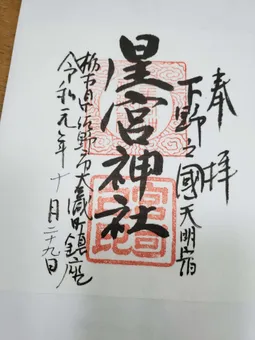 奉拝
下野之國天明宿
星宮神社
栃木県佐野市大蔵町鎮座
令和元年十月二十九日